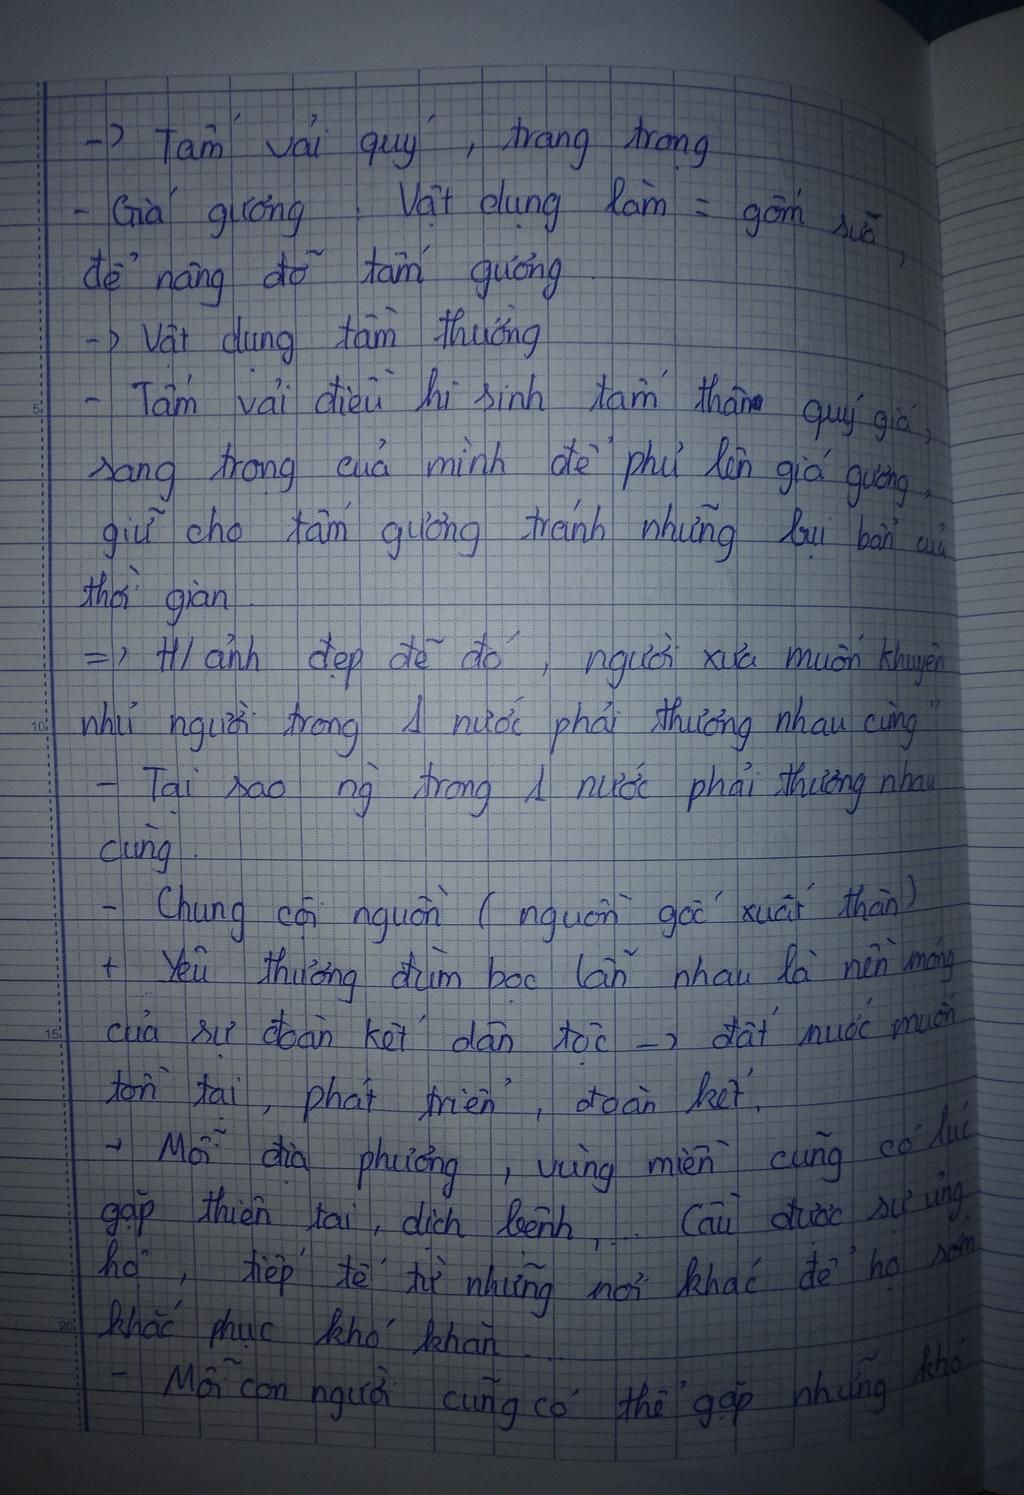 -> Tấm vải quý, trang trọng
- Giá gương. Vật dụng làm = gốm sứ,
để nâng đỡ tấm gương.
-> Vật dụng tầm thường
- Tấm vải điều hi sinh tấm thân quý giá,
sang trọng của mình để phủ lên giá gương,
giữ cho tấm gương tránh những bụi bẩn của
thời gian.
=> H/ảnh đẹp đẽ đó, người xưa muốn khuyên
nhủ người trong 1 nước phải thương nhau cùng"
- Tại sao ng` trong 1 nước phải thương nhau
cùng.
- Chung cội nguồn (nguồn gốc xuất thân)
+ Yêu thương đùm bọc lẫn nhau là nền móng
của sự đoàn kết dân tộc -> đất nước muốn
tồn tại, phát triển, đoàn kết.
+ Mỗi địa phương, vùng miền cũng có lúc
gặp thiên tai, dịch bệnh,... Cầu được sự ủng
hộ, tiếp tế từ những nơi khác để họ sớm
khắc phục khó khăn...
- Mỗi con người cũng có thể gặp những khó